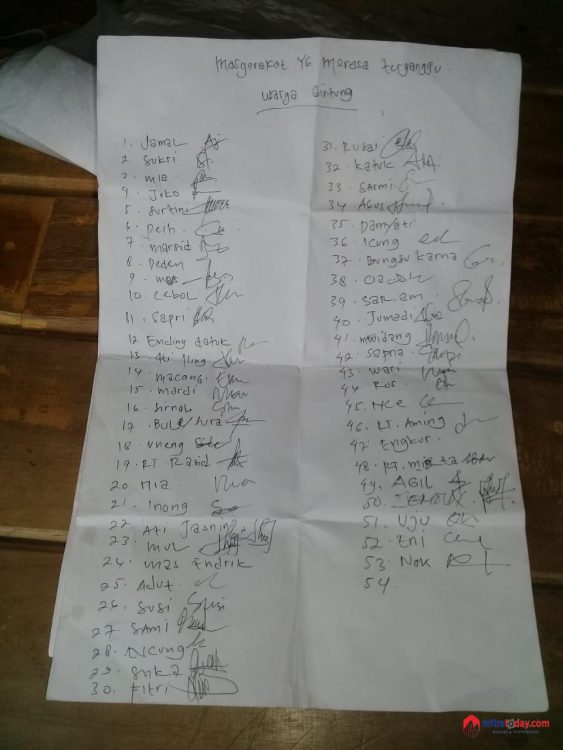 Masyarakat YG Merasa terganggu.
Warga Cintung
1. Jamal
2 Sukri
3. mia
4. Joko
5. Surtini
6 Peih.
7. Marsid
8. Deden
9.
10. Cebol
11. Sapri
12 Ending datuk
13.
14. macang
15. mardi
16.
17.
18. uneng
19. RT Rasid
20. Mia
21. Inong
22. Ati Jasning
23. mul
24. mas Endrik
25. Adut.
26. Susi
27. SAMI
28. Ncung
29. Suka
30. Fitri
31. Rusdi
32. Katuk
33. Sarmi
34. Agus
35. Damyati
36. Icung
37. Bungsu Karna
38.
39. Sariam
40. Jumadi
41.
42. Sapna
43. Wari
44. Ros.
45. NCE
46. RT. Aming
47. Engkur.
48. RT.
49. AGIL
50.
51. UJU
52. ENI
53. NOK
54.
mitratoday.com